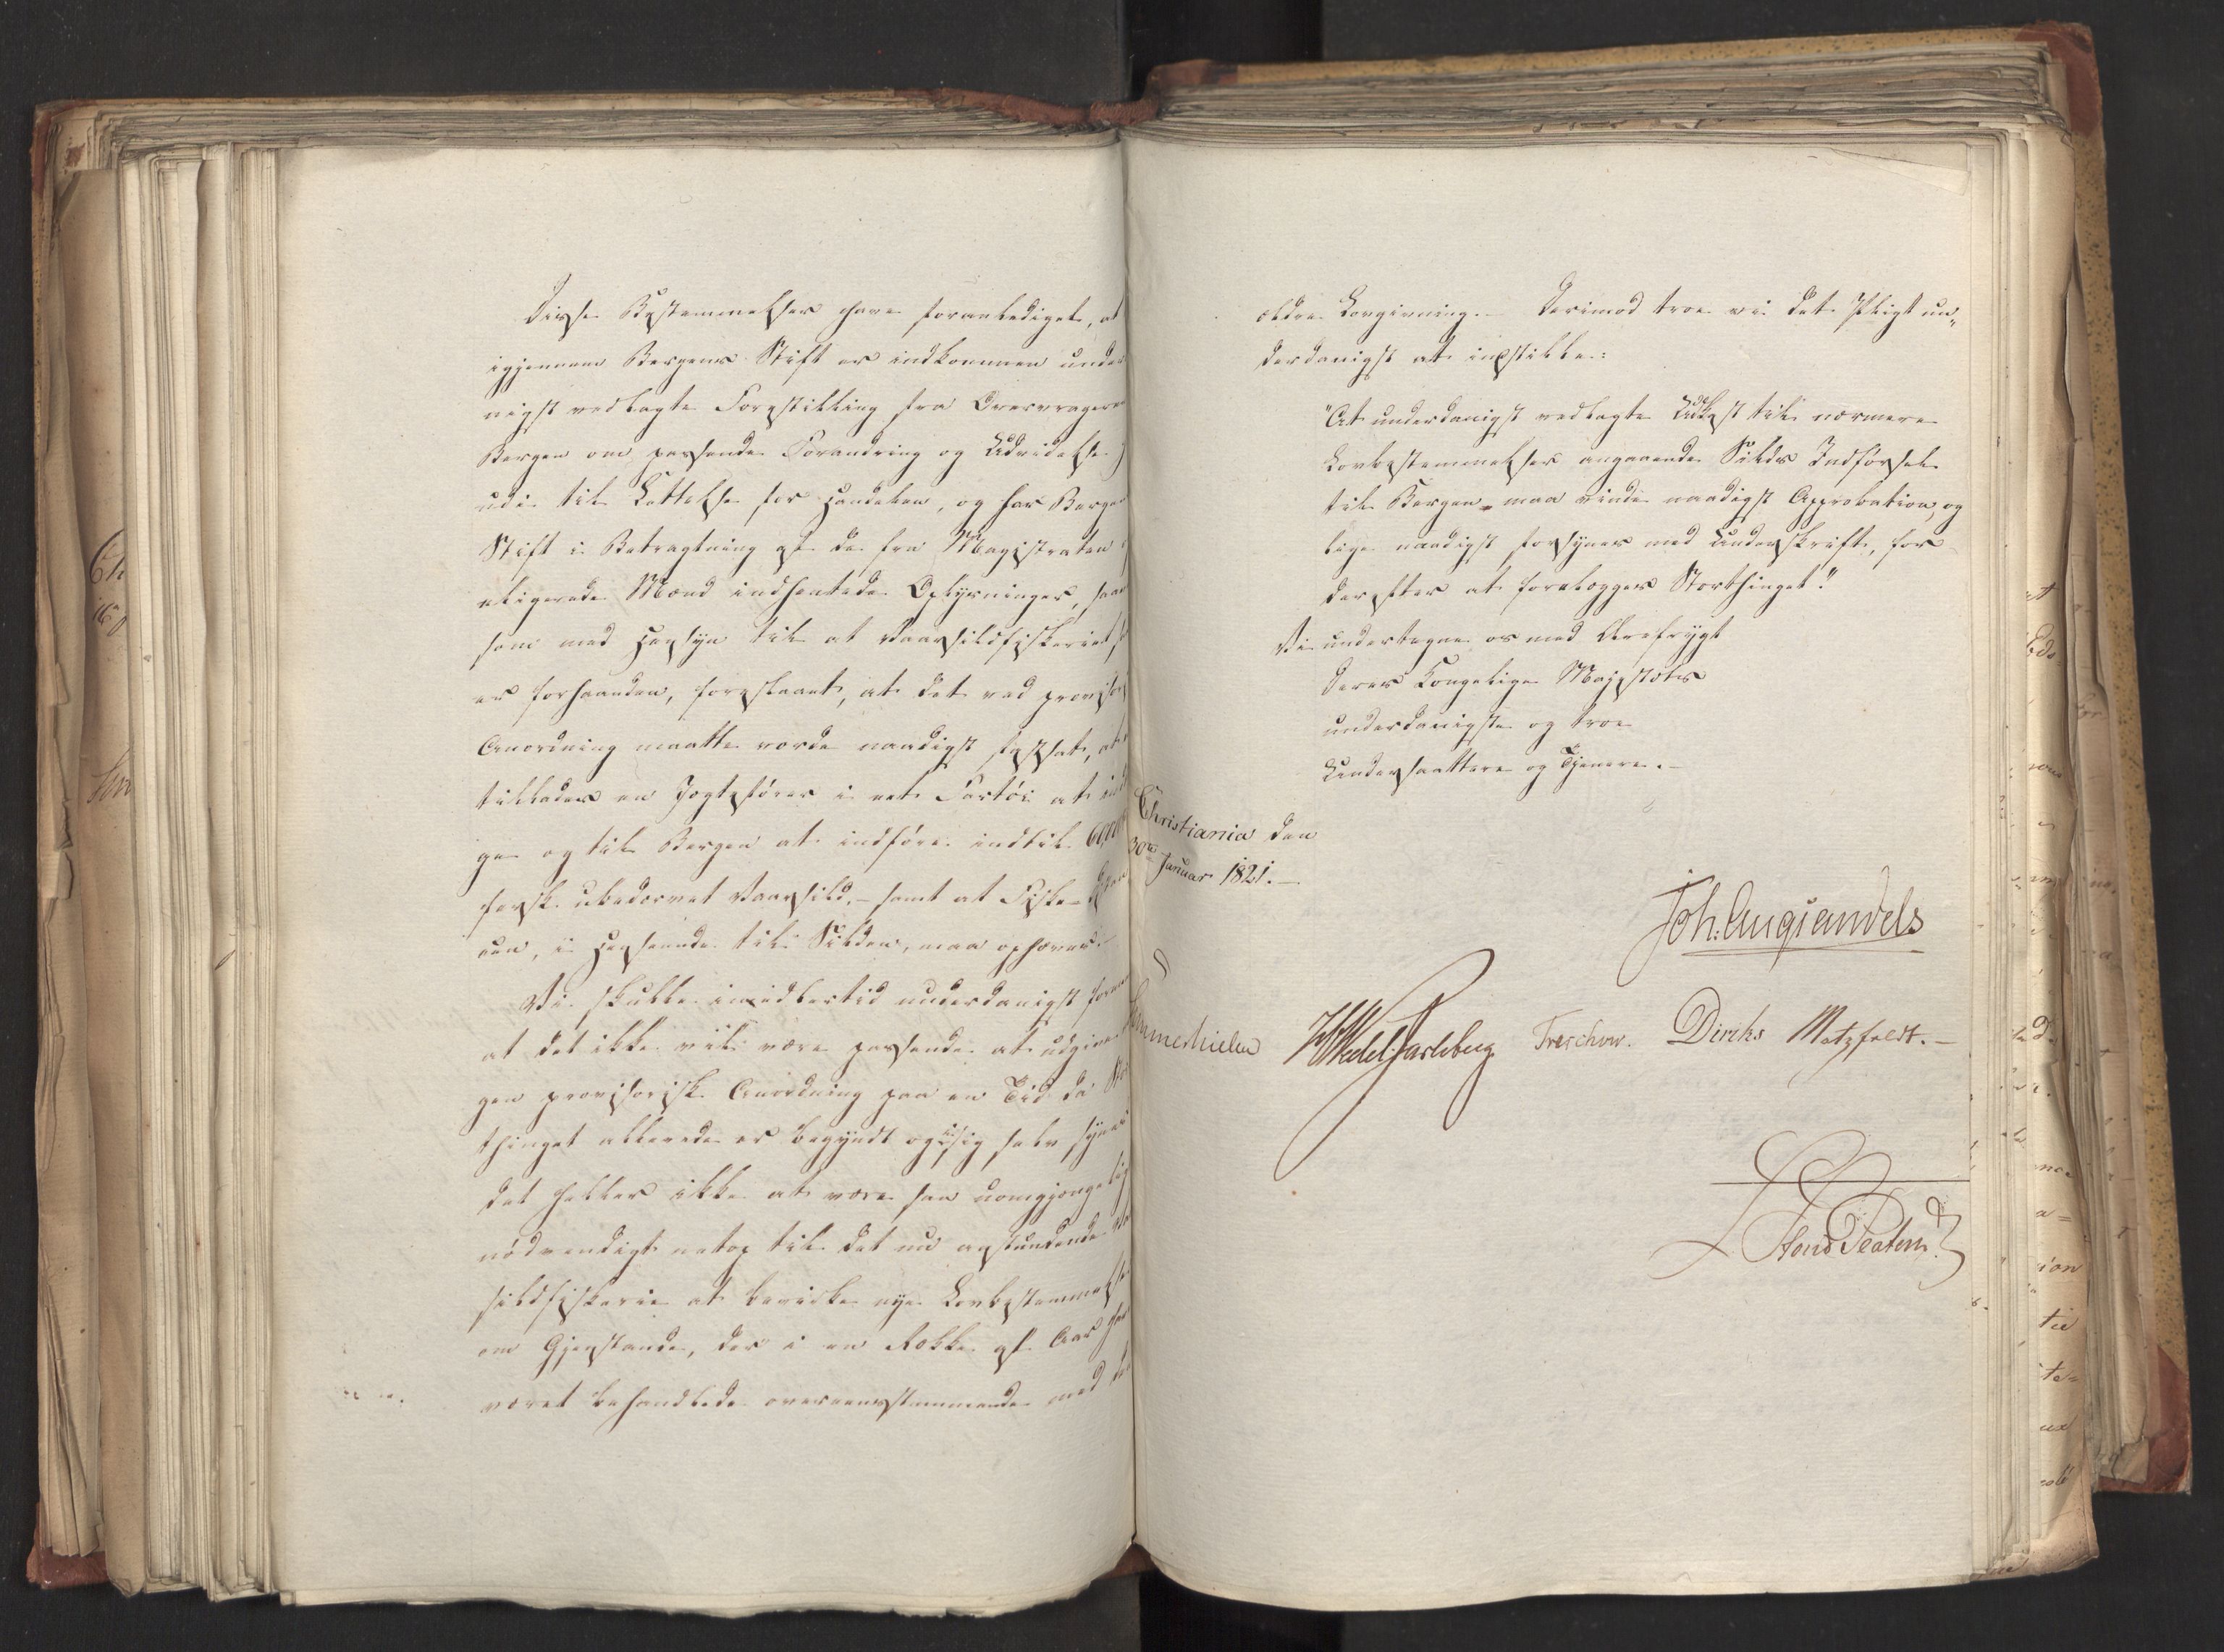 Disse Bestemmelser have foranlediget, at
igjennem Bergens Stift er indkommen under
nigst vedlagte Forestilling fra Overvragere
Bergen om passende Forandring og Udvidelse
udi til Lettelse for Handelen, og har Bergens
Stift i Betragtning af de fra Magistraten
eligerede Mænd indhentede Oplysninger, saa
som med Hensyn til at Vaarsildfiskeriet
er forhaanden, foreslaaet, at det ved provisor
Anordning maatte vorde naadigst fastsat, at
tillades en Jægtefører i eet Fartøi at
ge og til Bergen at indføre indtil
fersk ubedærvet Vaarsild, – samt at Fiske-
en, i Henseende til Silden, maa ophæves.
Vi skulle imidlertid underdanigst forme
at det ikke vil være passende at udgive
gen provisorisk Anordning paa en Tid da Stor
thinget allerede er begyndt og i sig selv synes
det heller ikke at være saa uomgjængelig
nødvendigt netop til det nu anstundende
sildfiskerie at bevirke nye Lovbestemmelse
om Gjenstande, der i en Række af Aar har
været behandlede overeensstemmende med den
ældre Lovgivning. – Derimod troe vi det Pligt un„
derdanigst at indstille:
"At underdanigst vedlagte Udkast til nærmere
Lovbestemmelser angaaende Silds Indførsel
til Bergen maa vinde naadigst Approbation, og
lige naadigst forsynes med Underskrift, for
derefter at forelægges Storthinget."
Vi undertegne os med Ærefrygt
Deres Kongelige Majestæts
underdanigste og troe
Undersaattere og Tjenere. –
Christiania den
30te Januar 1821. –
Joh: Aug: Sandels
Sommerhielm HWedel Jarlsberg Treschow. Diriks Motzfeldt. –